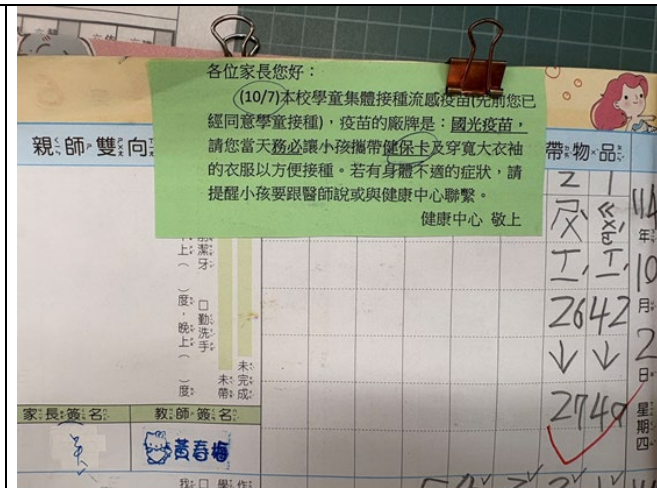 各位家長您好：
(10/7)本校學童集體接種流感疫苗(先前您已
經同意學童接種)，疫苗的廠牌是：國光疫苗，
請您當天務必讓小孩攜帶健保卡及穿寬大衣袖
的衣服以方便接種。若有身體不適的症狀，請
提醒小孩要跟醫師說或與健康中心聯繫。
健康中心 敬上
親師雙向
帶物品
114年10月2日星期四
1
ㄍㄨㄛˊ
工
42
↓
40
2
工
26
↓
27
潔牙
□勤洗手
上（ ）度，晚上（ ）度
未完成
未帶
家長簽名
教師簽名
黃春梅